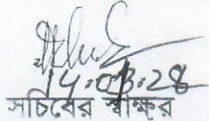 14.03.28
সচিবের স্বাক্ষর